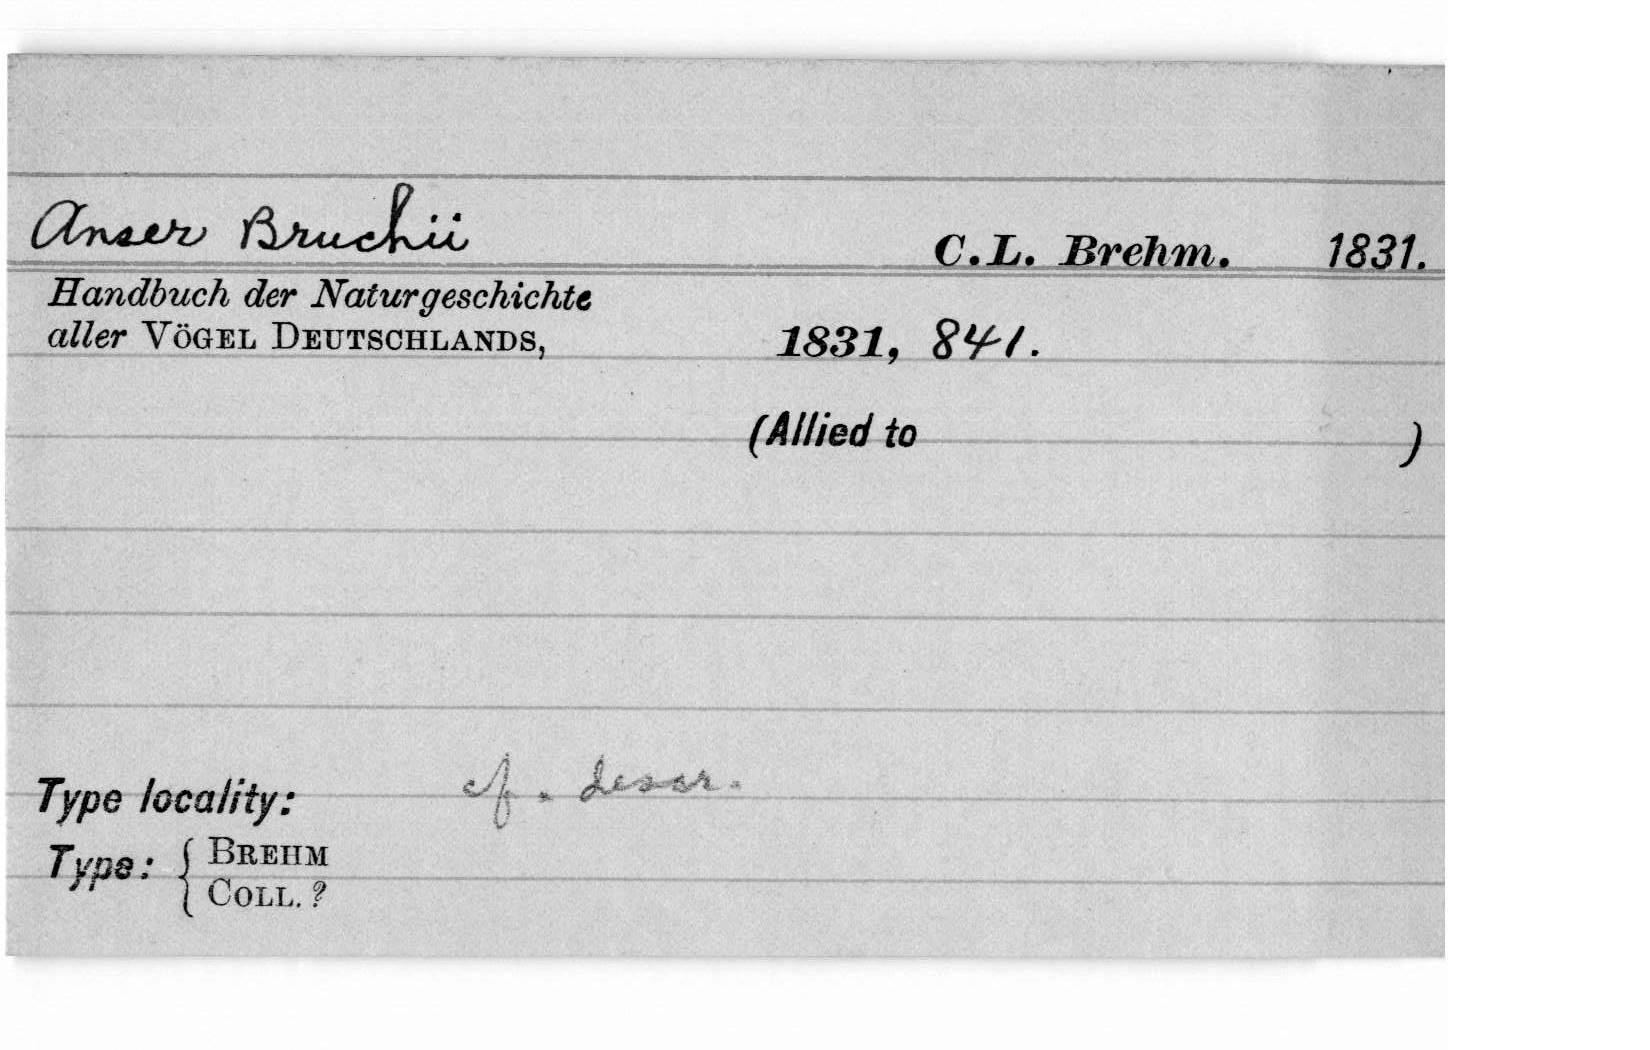 Anser Bruchii C.L. Brehm. 1831.
Handbuch der Naturgeschichte
aller VÖGEL DEUTSCHLANDS, 1831, 841.
(Allied to )
Type locality: cf. descr.
Type: { BREHM
COLL. ?